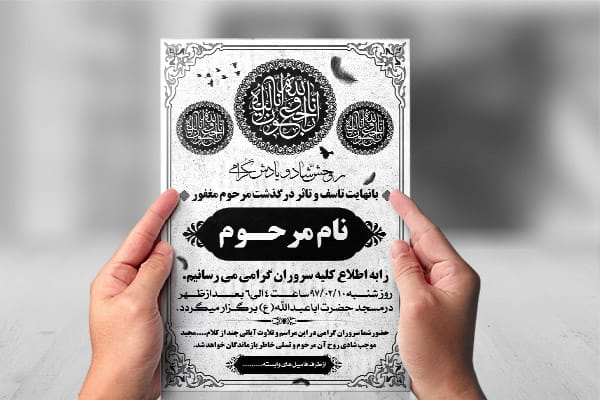 انا لله و انا الیه راجعون
روحش شاد و یادش گرامی
بانهایت تاسف و تاثر درگذشت مرحوم مغفور
نام مرحوم
رابه اطلاع کلیه سروران گرامی می رسانیم.
روز شنبه ۹۷/۰۲/۱۰ ساعت ٤ الی ٦ بعد از ظهر
در مسجد حضرت اباعبدالله (ع) برگزار میگردد.
حضور شما سروران گرامی در این مراسم و تلاوت آیاتی چند از کلام.....مجید
موجب شادی روح آن مرحوم و تسلی خاطر بازماندگان خواهد شد.
از طرف فامیل های وابسته..........